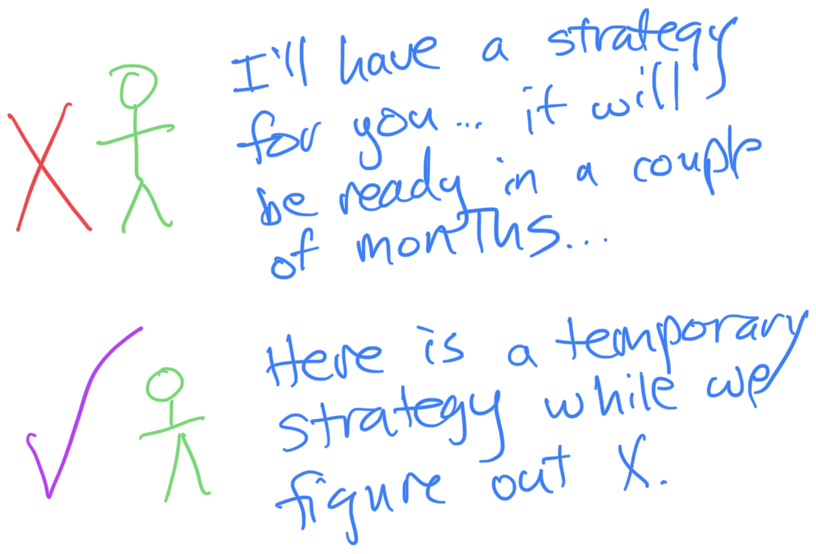 I'll have a strategy
for you... it will
be ready in a couple
of months...
Here is a temporary
strategy while we
figure out X.